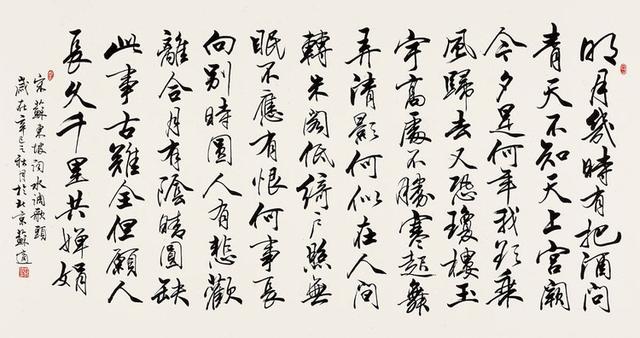 明月幾時有把酒問
青天不知天上宮闕
今夕是何年我欲乘
風歸去又恐瓊樓玉
宇高處不勝寒起舞
弄清影何似在人間
轉朱閣低綺戶照無
眠不應有恨何事長
向別時圓人有悲歡
離合月有陰晴圓缺
此事古難全但願人
長久千里共嬋娟
宋蘇東坡詞水調歌頭
歲在辛巳之秋月於北京蘇適